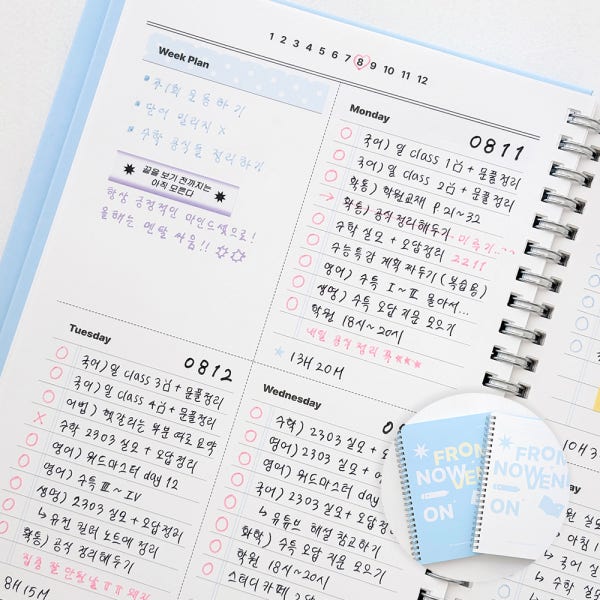 1 2 3 4 5 6 7 8 9 10 11 12
Week Plan
• 주1회 운동하기
• 단어 밀리지 X
• 수학 공식들 정리하기
끝을 보기 전까지는
아직 모른다
항상 긍정적인 마인드셋으로!
올해는 멘탈 싸움!!
Monday
0811
국어) 일 class 1강 + 문풀정리
국어) 일 class 2강 + 문풀정리
확통) 학원교재 p.21~32
→ 확통) 공식정리해두기 - 미루기..
수학 실모 + 오답정리 2211
수능특강 계획 짜두기 (복습용)
영어) 수특 Ⅰ~Ⅱ 몰아서...
생명) 수특 오답 지문 모으기
학원 18시~20시
내일 공식 정리 꼭
13H 20M
Tuesday
0812
국어) 일 class 3강 + 문풀정리
국어) 일 class 4강 + 문풀정리
어법) 헷갈리는 부분 여로 요약
수학 2303 실모 + 오답정리
영어) 워드마스터 day 12
영어) 수특 Ⅲ~Ⅳ
생명) 2303 실모 + 오답정리
↳ 유전 킬러 노트에 정리
확통) 공식 정리해두기
집중 잘 안된 날 ㅠㅠ
8H 15M
Wednesday
수학) 2303 실모 + 오
영어) 2303 실모 +
영어) 워드마스터 day
국어) 2303 실모 + 오답
↳ 유튜브 해설 참고하기
화학) 수특 오답 지문 모으기
학원 18시~20시
스터디카페
10H 3
FROM
NOW
EVEN
ON
FROM
NOW
EVEN
ON